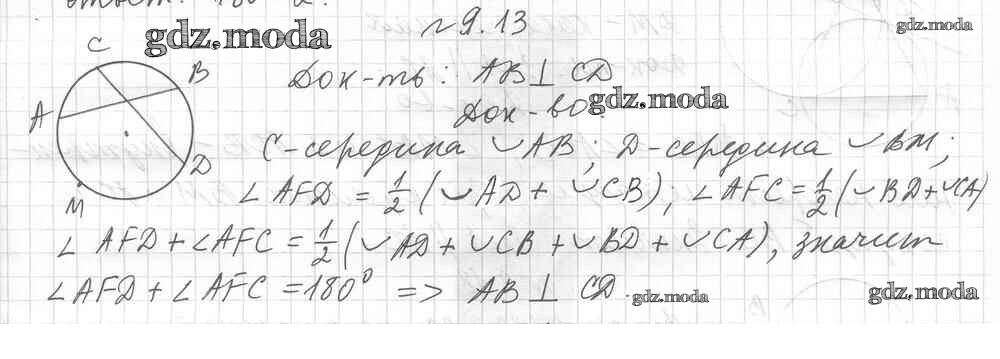 ответ: 180°
№9.13
gdz.moda
gdz.moda
C
B
A
D
M
Док-ть: AB⊥CD
Док-во:
gdz.moda
C-середина ◡AB; D-середина ◡BM;
∠AFD = 1/2 (◡AD + ◡CB); ∠AFC = 1/2 (◡BD + ◡CA)
∠AFD + ∠AFC = 1/2 (◡AD + ◡CB + ◡BD + ◡CA), значит
∠AFD + ∠AFC = 180° => AB⊥CD.
gdz.moda
gdz.moda